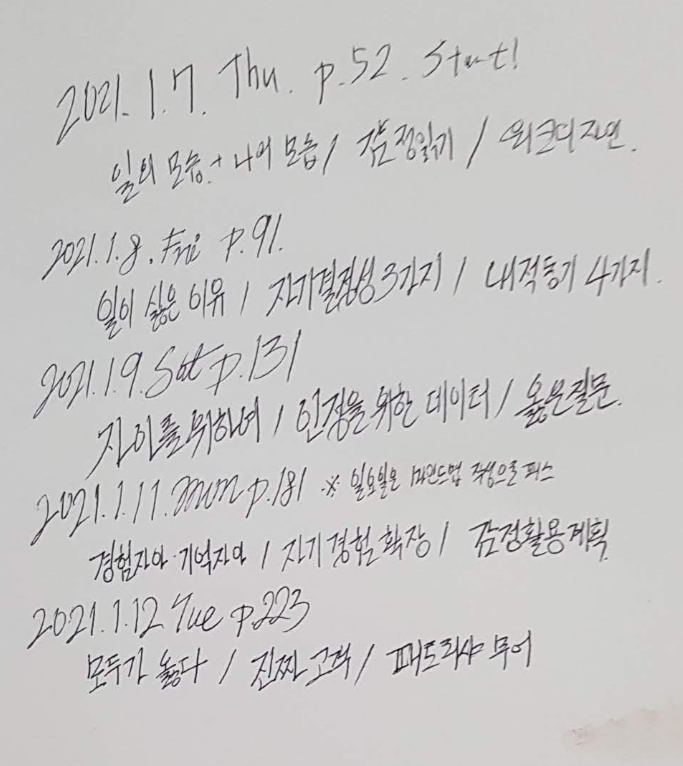 2021. 1. 7. Thu. p.52. Start!
일의 모습 + 나의 모습 / 감정읽기 / 워크디자인.
2021. 1. 8. Fri p.91.
일이 싫은 이유 / 자기결정성 3가지 / 내적동기 4가지.
2021. 1. 9. Sat p.131
자아를 위하여 / 인정을 위한 데이터 / 옳은 질문.
2021. 1. 11. mun p.181 ※ 일요일은 마인드맵 작성으로 패스
경험자아·기억자아 / 자기경험 확장 / 감정활용계획
2021. 1. 12. Tue p.223
모두가 옳다 / 진짜 고객 / 패트리샤 무어